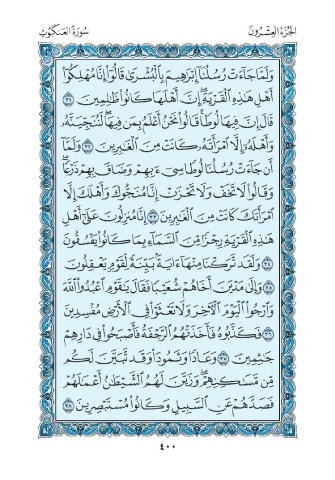 الجزء العشرون سورة العنكبوت
وَلَمَّا جَاءَتْ رُسُلُنَا إِبْرَاهِيمَ بِالْبُشْرَىٰ قَالُوا إِنَّا مُهْلِكُو
أَهْلِ هَٰذِهِ الْقَرْيَةِ إِنَّ أَهْلَهَا كَانُوا ظَالِمِينَ ٣١
قَالَ إِنَّ فِيهَا لُوطًا قَالُوا نَحْنُ أَعْلَمُ بِمَن فِيهَا لَنُنَجِّيَنَّهُ
وَأَهْلَهُ إِلَّا امْرَأَتَهُ كَانَتْ مِنَ الْغَابِرِينَ ٣٢ وَلَمَّا
أَن جَاءَتْ رُسُلُنَا لُوطًا سِيءَ بِهِمْ وَضَاقَ بِهِمْ ذَرْعًا
وَقَالُوا لَا تَخَفْ وَلَا تَحْزَنْ إِنَّا مُنَجُّوكَ وَأَهْلَكَ إِلَّا
امْرَأَتَكَ كَانَتْ مِنَ الْغَابِرِينَ ٣٣ إِنَّا مُنزِلُونَ عَلَىٰ أَهْلِ
هَٰذِهِ الْقَرْيَةِ رِجْزًا مِّنَ السَّمَاءِ بِمَا كَانُوا يَفْسُقُونَ
٣٤ وَلَقَد تَّرَكْنَا مِنْهَا آيَةً بَيِّنَةً لِّقَوْمٍ يَعْقِلُونَ
٣٥ وَإِلَىٰ مَدْيَنَ أَخَاهُمْ شُعَيْبًا فَقَالَ يَا قَوْمِ اعْبُدُوا اللَّهَ
وَارْجُوا الْيَوْمَ الْآخِرَ وَلَا تَعْثَوْا فِي الْأَرْضِ مُفْسِدِينَ
٣٦ فَكَذَّبُوهُ فَأَخَذَتْهُمُ الرَّجْفَةُ فَأَصْبَحُوا فِي دَارِهِمْ
جَاثِمِينَ ٣٧ وَعَادًا وَثَمُودَ وَقَد تَّبَيَّنَ لَكُم
مِّن مَّسَاكِنِهِمْ وَزَيَّنَ لَهُمُ الشَّيْطَانُ أَعْمَالَهُمْ
فَصَدَّهُمْ عَنِ السَّبِيلِ وَكَانُوا مُسْتَبْصِرِينَ ٣٨
٤٠٠